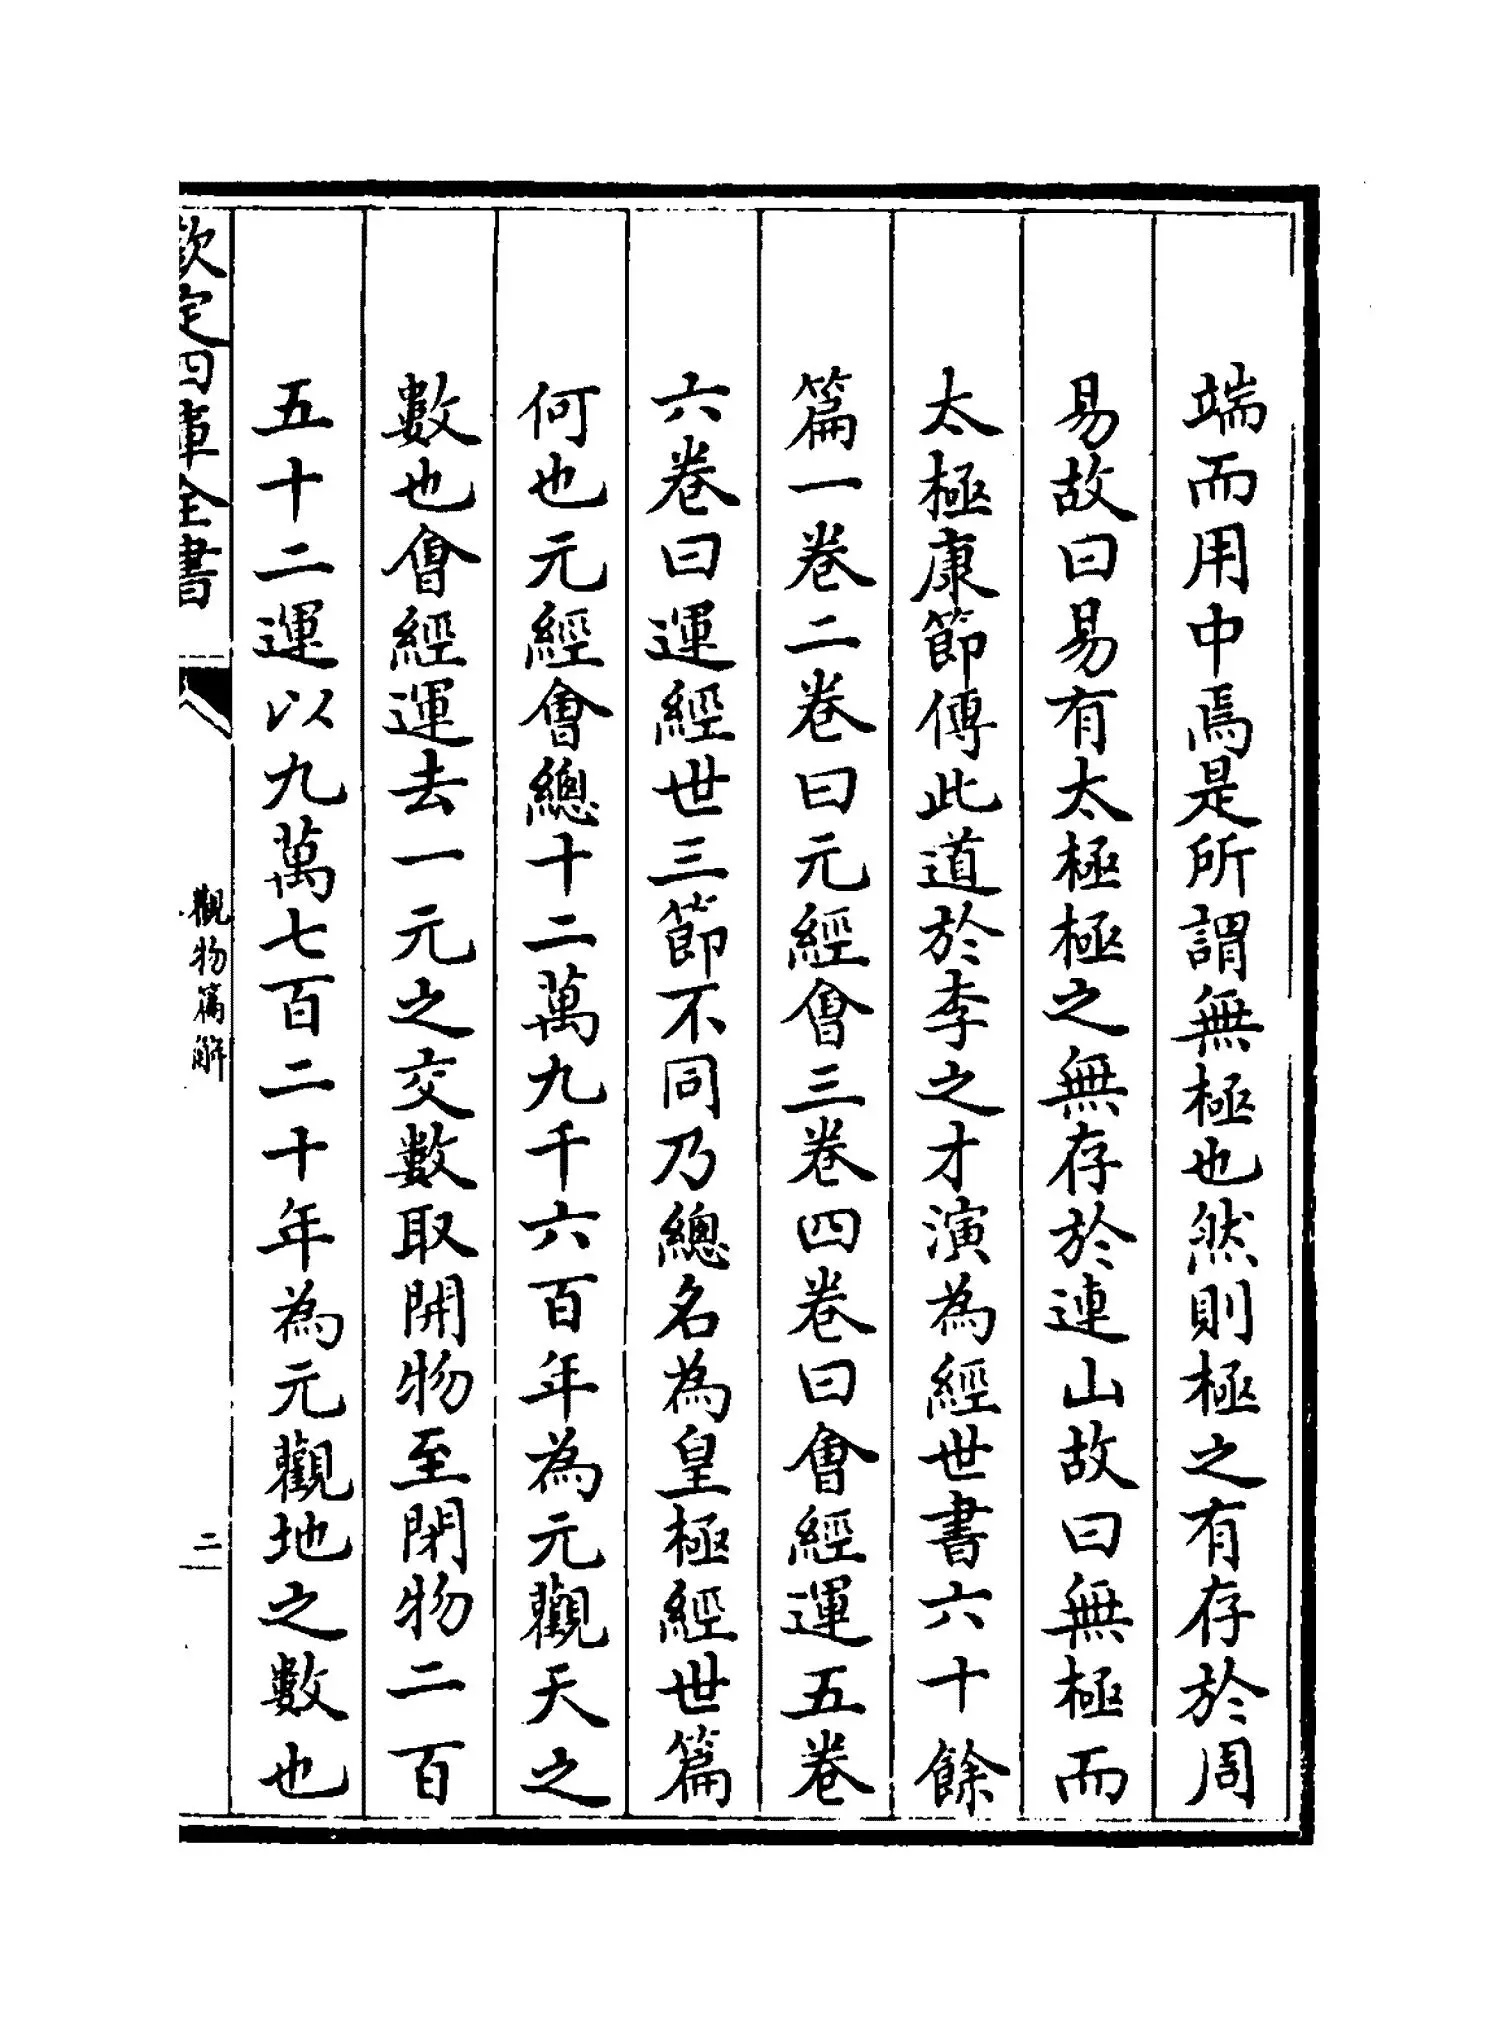 端而用中焉是所謂無極也然則極之有存於周
易故曰易有太極極之無存於連山故曰無極而
太極康節傳此道於李之才演為經世書六十餘
篇一卷二卷曰元經會三卷四卷曰會經運五卷
六卷曰運經世三節不同乃總名為皇極經世篇
何也元經會總十二萬九千六百年為元觀天之
數也會經運去一元之交數取開物至閉物二百
五十二運以九萬七百二十年為元觀地之數也
欽定四庫全書
觀物篇解
二